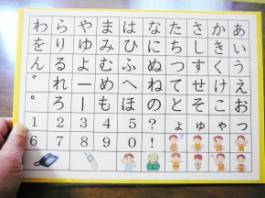 わらやまはなたさかあ
をりゆみひにちしきい
んるよむふぬつすくう
れめへねてせけえ
゜ろーもほのとそこお
1 2 3 4 5 ? ょ ゅ ゃ っ
6 7 8 9 0 !